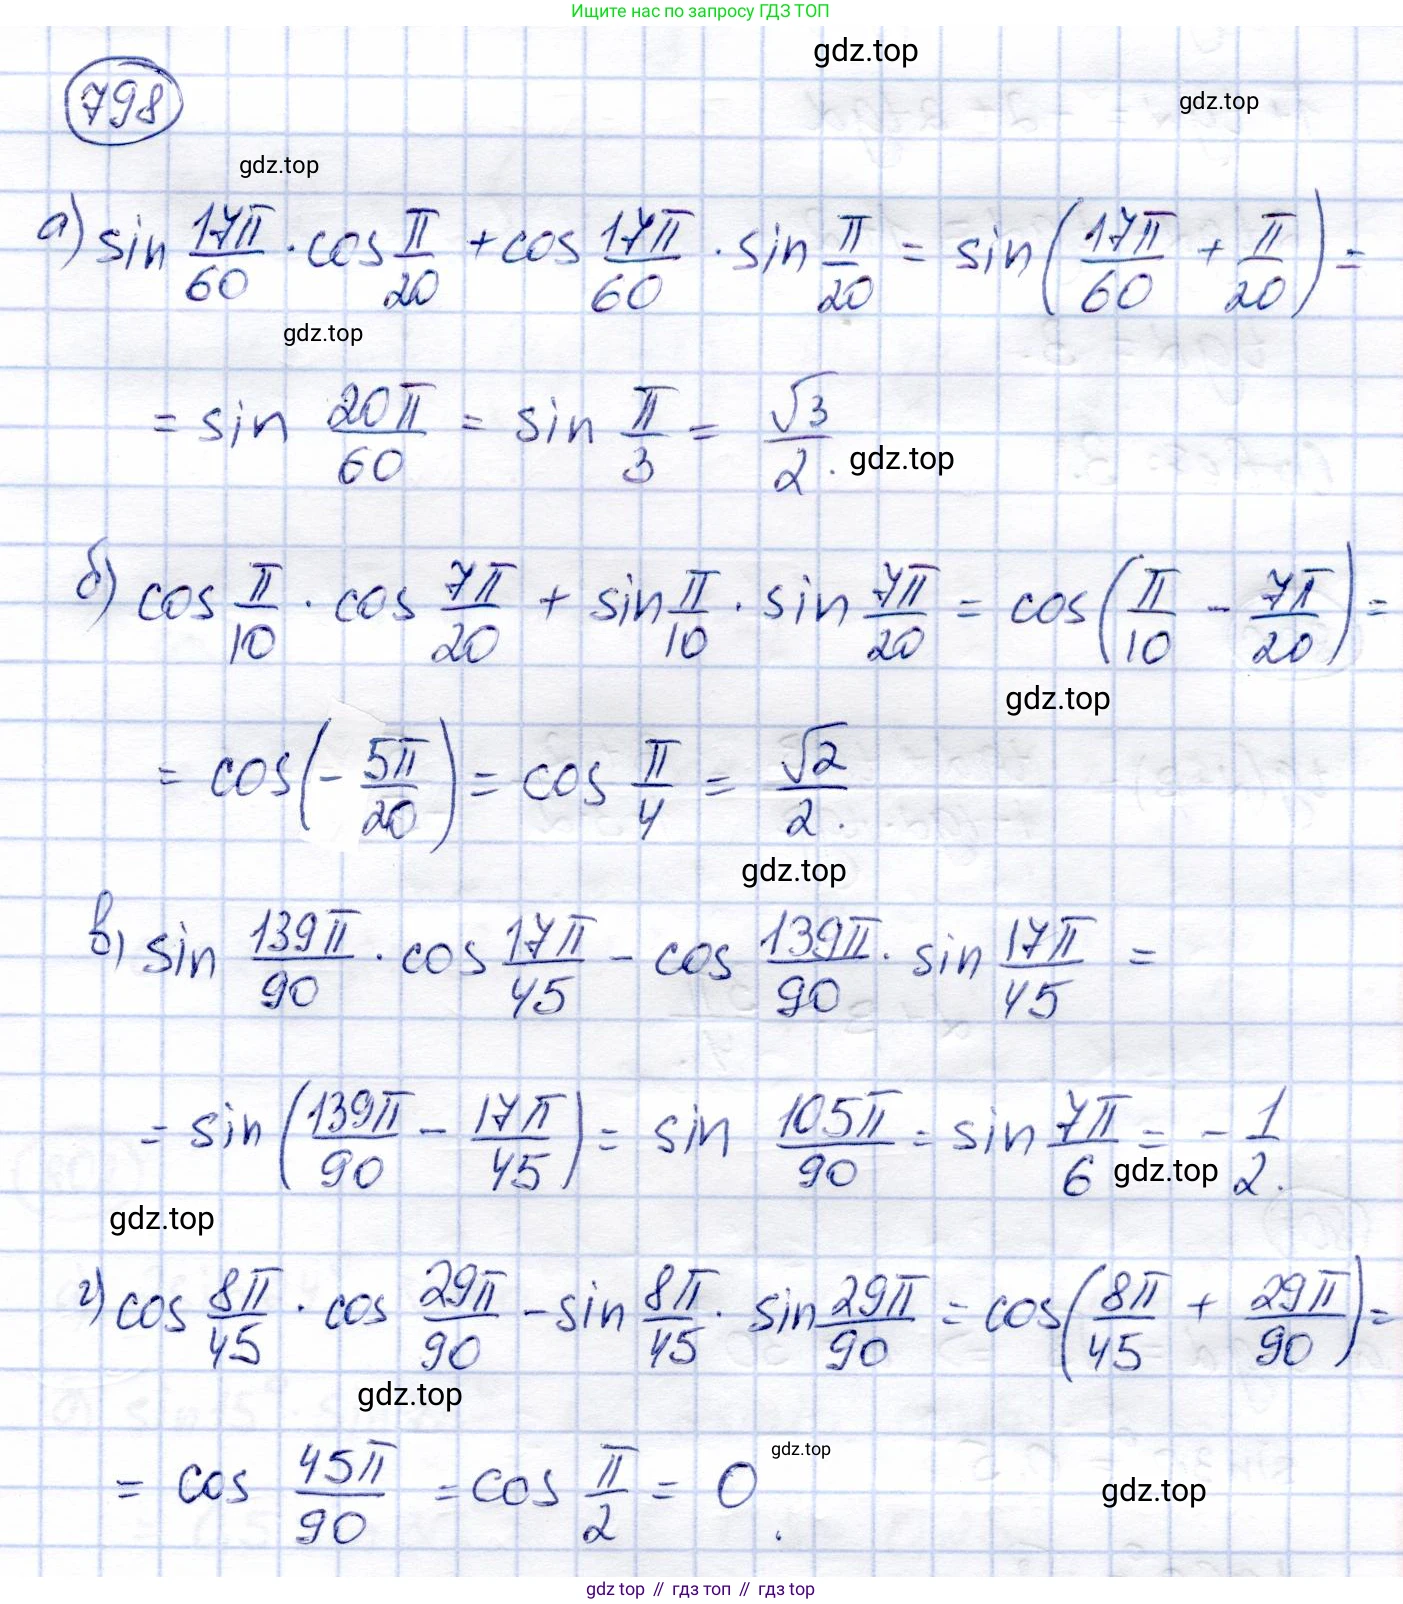 Ищите нас по запросу ГДЗ ТОП
gdz.top
798
gdz.top
gdz.top
а) sin 17π/60 · cos π/20 + cos 17π/60 · sin π/20 = sin(17π/60 + π/20) =
gdz.top
= sin 20π/60 = sin π/3 = √3/2.
gdz.top
б) cos π/10 · cos 7π/20 + sin π/10 · sin 7π/20 = cos(π/10 - 7π/20) =
gdz.top
= cos(-5π/20) = cos π/4 = √2/2.
gdz.top
в) sin 139π/90 · cos 17π/45 - cos 139π/90 · sin 17π/45 =
= sin(139π/90 - 17π/45) = sin 105π/90 = sin 7π/6 = -1/2.
gdz.top
gdz.top
г) cos 8π/45 · cos 29π/90 - sin 8π/45 · sin 29π/90 = cos(8π/45 + 29π/90) =
gdz.top
= cos 45π/90 = cos π/2 = 0.
gdz.top
gdz.top
gdz top // гдз топ // gdz top